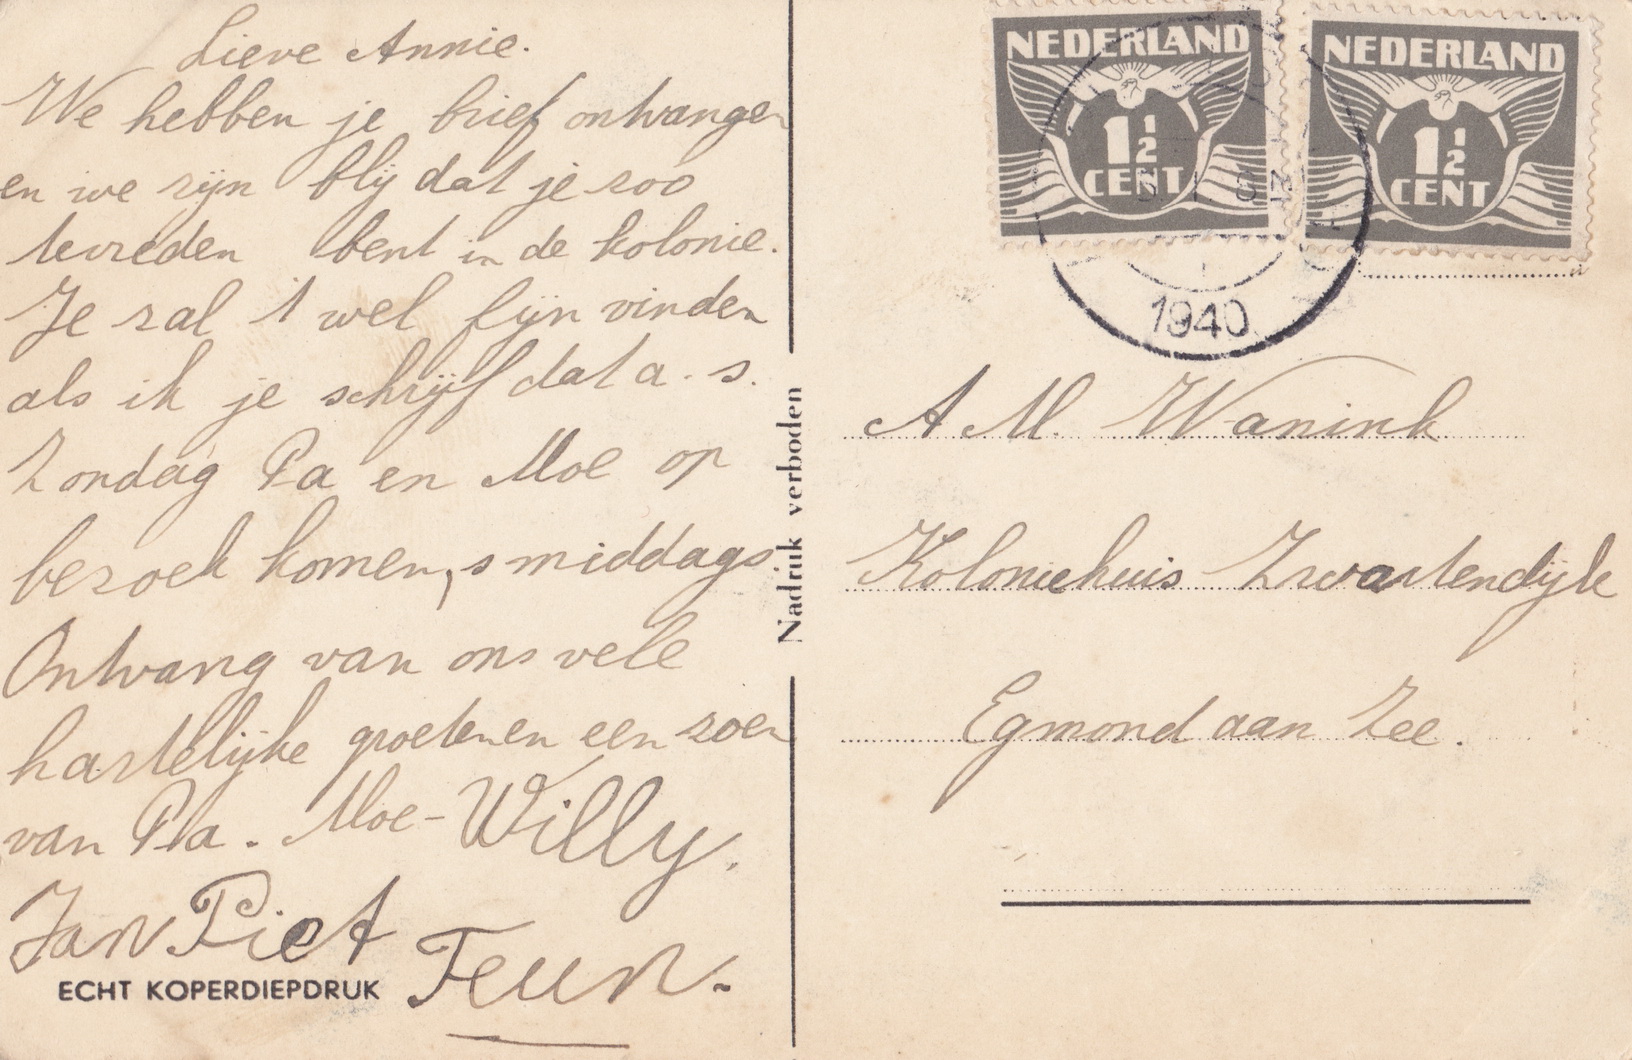 Lieve Annie.
We hebben je brief ontvangen
en we zijn blij dat je zoo
tevreden bent in de kolonie.
Je zal 't wel fijn vinden
als ik je schrijf dat a. s.
Zondag Pa en Moe op
bezoek komen, s middags.
Ontvang van ons vele
hartelijke groeten en een zoen
van Pa. Moe - Willy.
Jan Piet
Teun.
ECHT KOPERDIEPDRUK
Nadruk verboden
NEDERLAND
1½
CENT
NEDERLAND
1½
CENT
1940
A M. Wanink
Koloniehuis Zwartendijk
Egmond aan Zee.